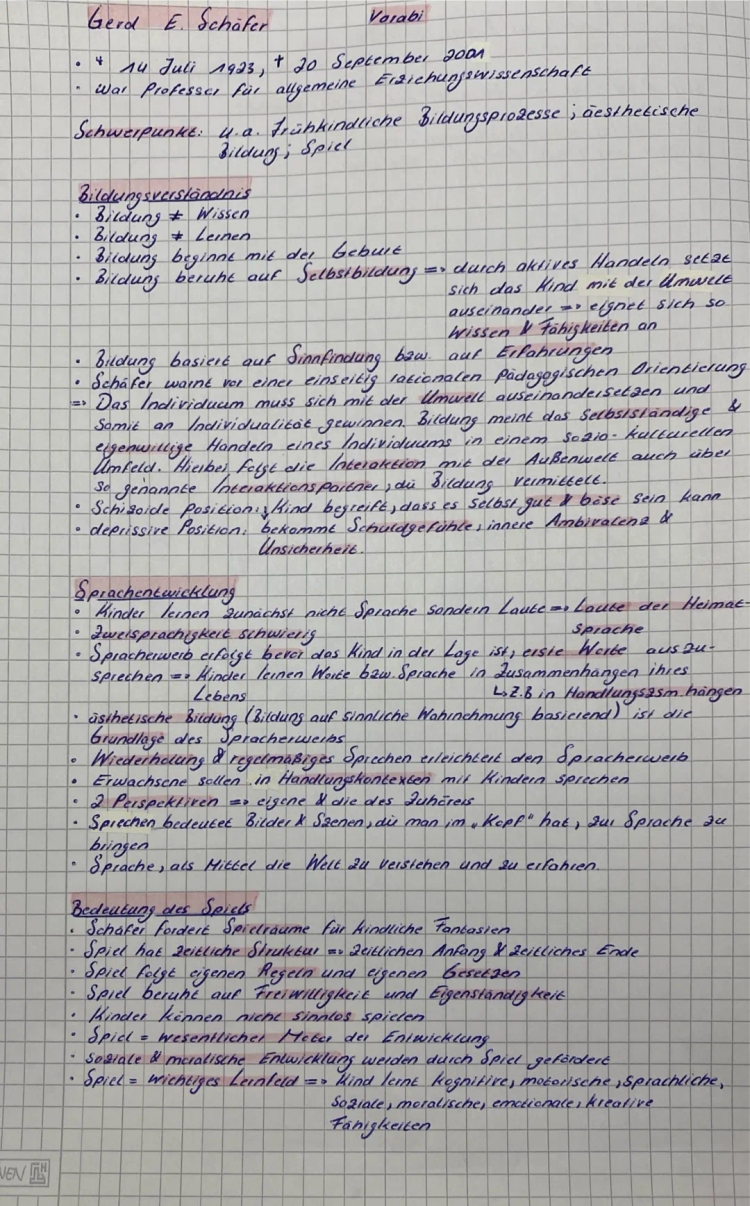 Gerd E. Schäfer Vorabi
• * 14 Juli 1923, † 20 September 2001
• War Professor für allgemeine Erziehungswissenschaft
Schwerpunkt: u.a. Frühkindliche Bildungsprozesse; äesthetische
Bildung; Spiel
Bildungsverständnis
• Bildung ≠ Wissen
• Bildung ≠ Lernen
• Bildung beginnt mit der Geburt
• Bildung beruht auf Selbstbildung => durch aktives Handeln setzt
sich das Kind mit der Umwelt
auseinander => eignet sich so
Wissen & Fähigkeiten an
• Bildung basiert auf Sinnfindung bzw. auf Erfahrungen
• Schäfer warnt vor einer einseitig rationalen pädagogischen Orientierung
=> Das Individuum muss sich mit der Umwelt auseinandersetzen und
somit an Individualität gewinnen. Bildung meint das Selbstständige &
eigenwillige Handeln eines Individuums in einem sozio-kulturellen
Umfeld. Hierbei folgt die Interaktion mit der Außenwelt auch über
so genannte Interaktionspartner, die Bildung vermittelt.
• Schizoide Position: Kind begreift, dass es selbst gut & böse sein kann
• depressive Position: bekommt Schuldgefühle, innere Ambivalenz &
Unsicherheit.
Sprachentwicklung
• Kinder lernen zunächst nicht Sprache sondern Laute => Laute der Heimat-
sprache
• Zweisprachigkeit schwierig
• Spracherwerb erfolgt bevor das Kind in der Lage ist, erste Worte auszu-
sprechen => Kinder lernen Worte bzw. Sprache in Zusammenhängen ihres
Lebens ↳ z.B in Handlungszsm.hängen
• ästhetische Bildung (Bildung auf sinnliche Wahrnehmung basierend) ist die
Grundlage des Spracherwerbs
• Wiederholung & regelmäßiges Sprechen erleichtert den Spracherwerb
• Erwachsene sollen in Handlungskontexten mit Kindern sprechen
• 2 Perspektiven => eigene & die des Zuhörers
• Sprechen bedeutet Bilder & Szenen, die man im „Kopf" hat, zur Sprache zu
bringen
• Sprache, als Mittel die Welt zu verstehen und zu erfahren.
Bedeutung des Spiels
• Schäfer fordert Spielräume für kindliche Fantasien
• Spiel hat zeitliche Struktur => zeitlichen Anfang & zeitliches Ende
• Spiel folgt eigenen Regeln und eigenen Gesetzen
• Spiel beruht auf Freiwilligkeit und Eigenständigkeit
• Kinder können nicht sinnlos spielen
• Spiel = wesentlicher Motor der Entwicklung
• soziale & moralische Entwicklung werden durch Spiel gefördert
• Spiel = wichtiges Lernfeld => Kind lernt kognitive, motorische, sprachliche,
soziale, moralische, emotionale, kreative
Fähigkeiten